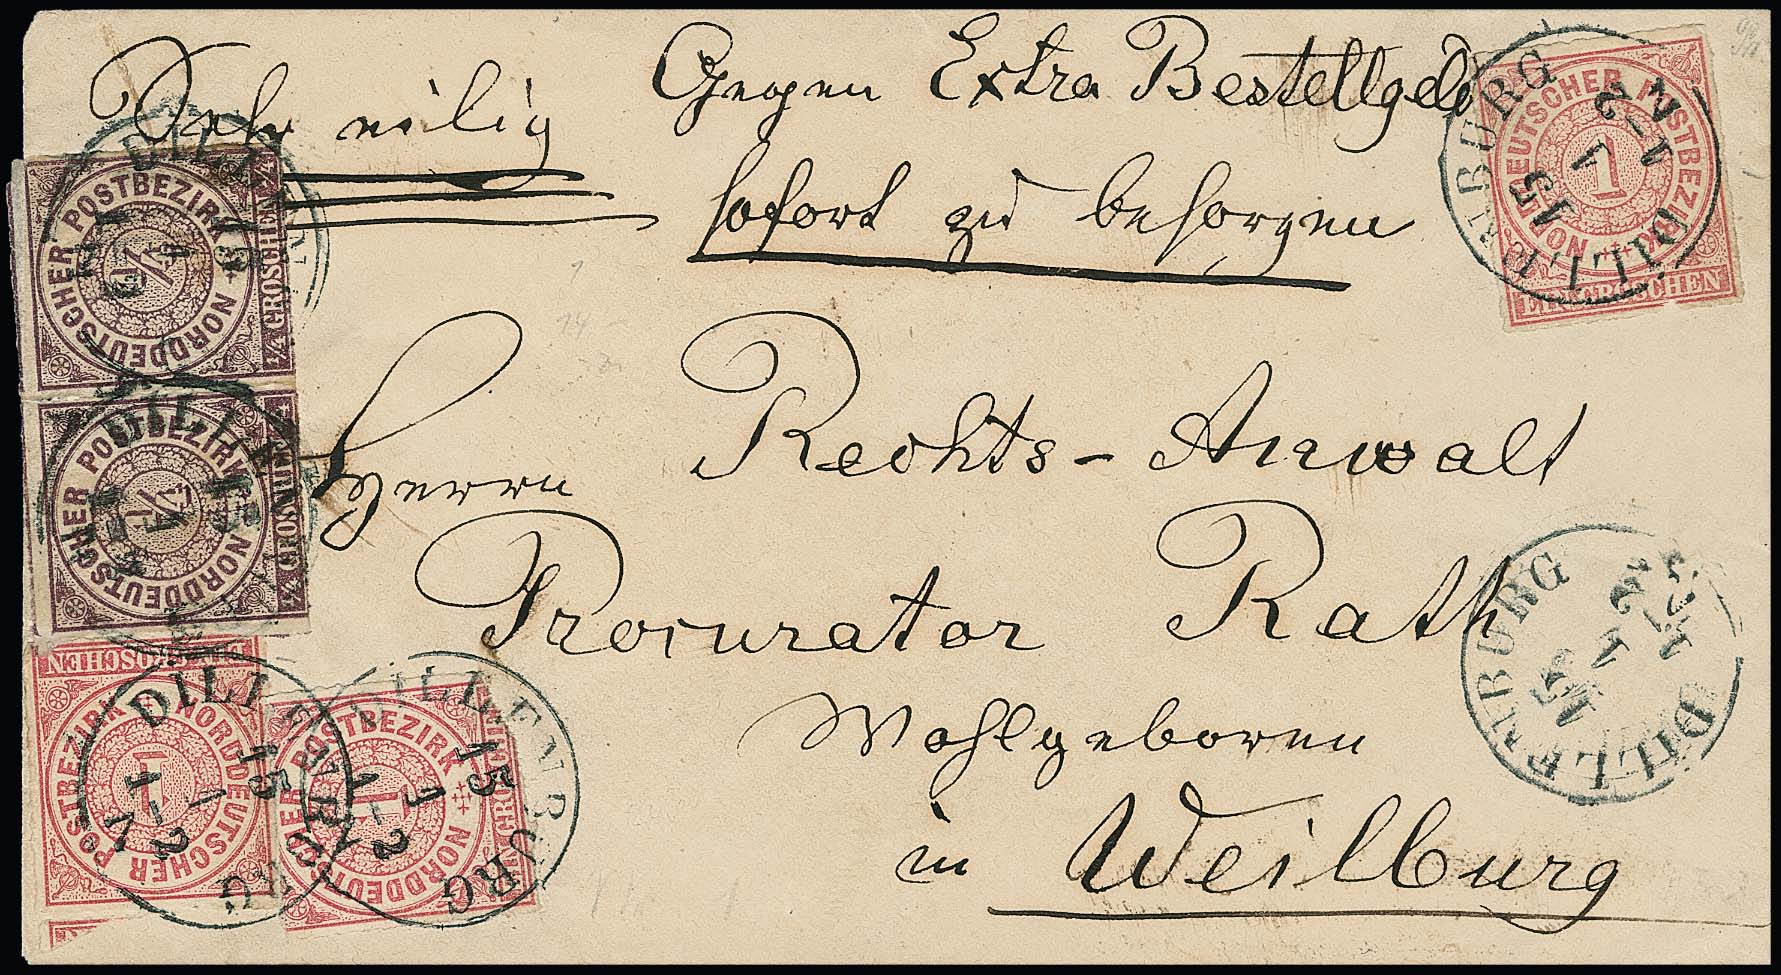 Sehr eilig
Gegen Extra Bestellgeld
sofort zu besorgen
Herrn Rechts-Anwalt
Procurator Rath
Wohlgeboren
in Weilburg
NORDDEUTSCHER POSTBEZIRK
1/4
1/4 GROSCHEN
NORDDEUTSCHER POSTBEZIRK
1/4
1/4 GROSCHEN
NORDDEUTSCHER POSTBEZIRK
1
EIN GROSCHEN
NORDDEUTSCHER POSTBEZIRK
1
EIN GROSCHEN
NORDDEUTSCHER POSTBEZIRK
1
EIN GROSCHEN
DILLENBURG
15
1
1-2 N
DILLENBURG
15
1
1-2 N
DILLENBURG
15
1
1-2
DILLENBURG
15
1
1-2 N